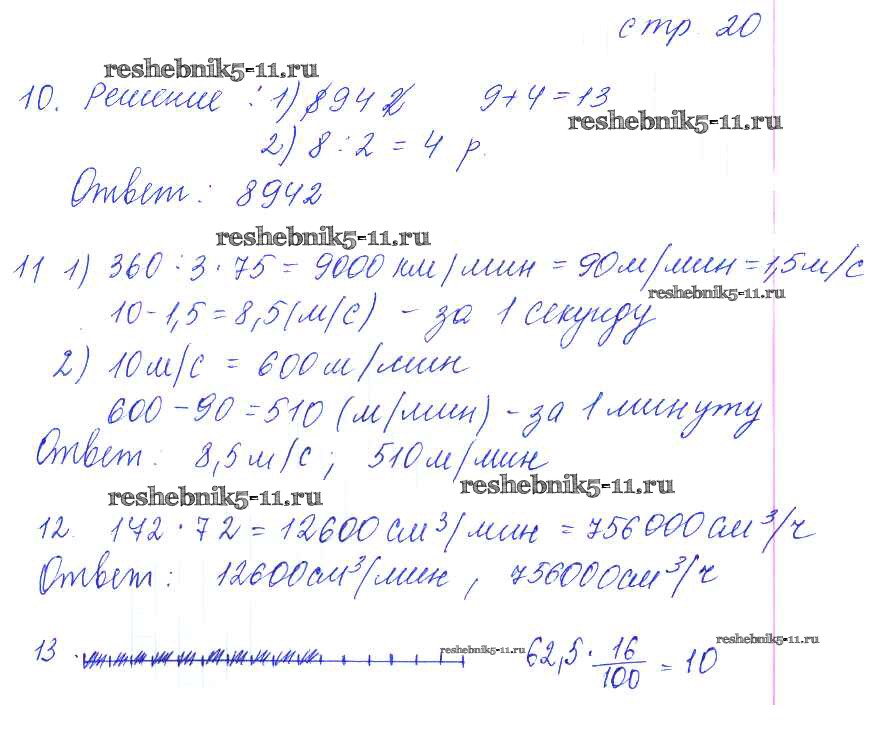 стр. 20
reshebnik5-11.ru
10. Решение: 1) 8942 9+4=13
reshebnik5-11.ru
2) 8:2=4 р.
Ответ: 8942
reshebnik5-11.ru
11 1) 360:3·75=9000 км/мин=90м/мин=1,5м/с
reshebnik5-11.ru
10-1,5=8,5(м/с) - за 1 секунду
2) 10м/с = 600м/мин
600-90=510 (м/мин) - за 1 минуту
Ответ: 8,5м/с; 510м/мин
reshebnik5-11.ru reshebnik5-11.ru
12. 142·72=12600см³/мин=756000см³/ч
Ответ: 12600см³/мин, 756000см³/ч
13 reshebnik5-11.ru 62,5·16/100=10 reshebnik5-11.ru